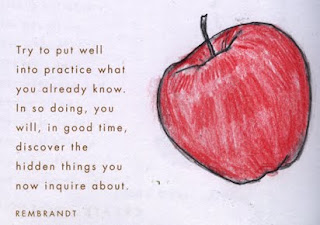 Try to put well
into practice what
you already know.
In so doing, you
will, in good time,
discover the
hidden things you
now inquire about.
REMBRANDT